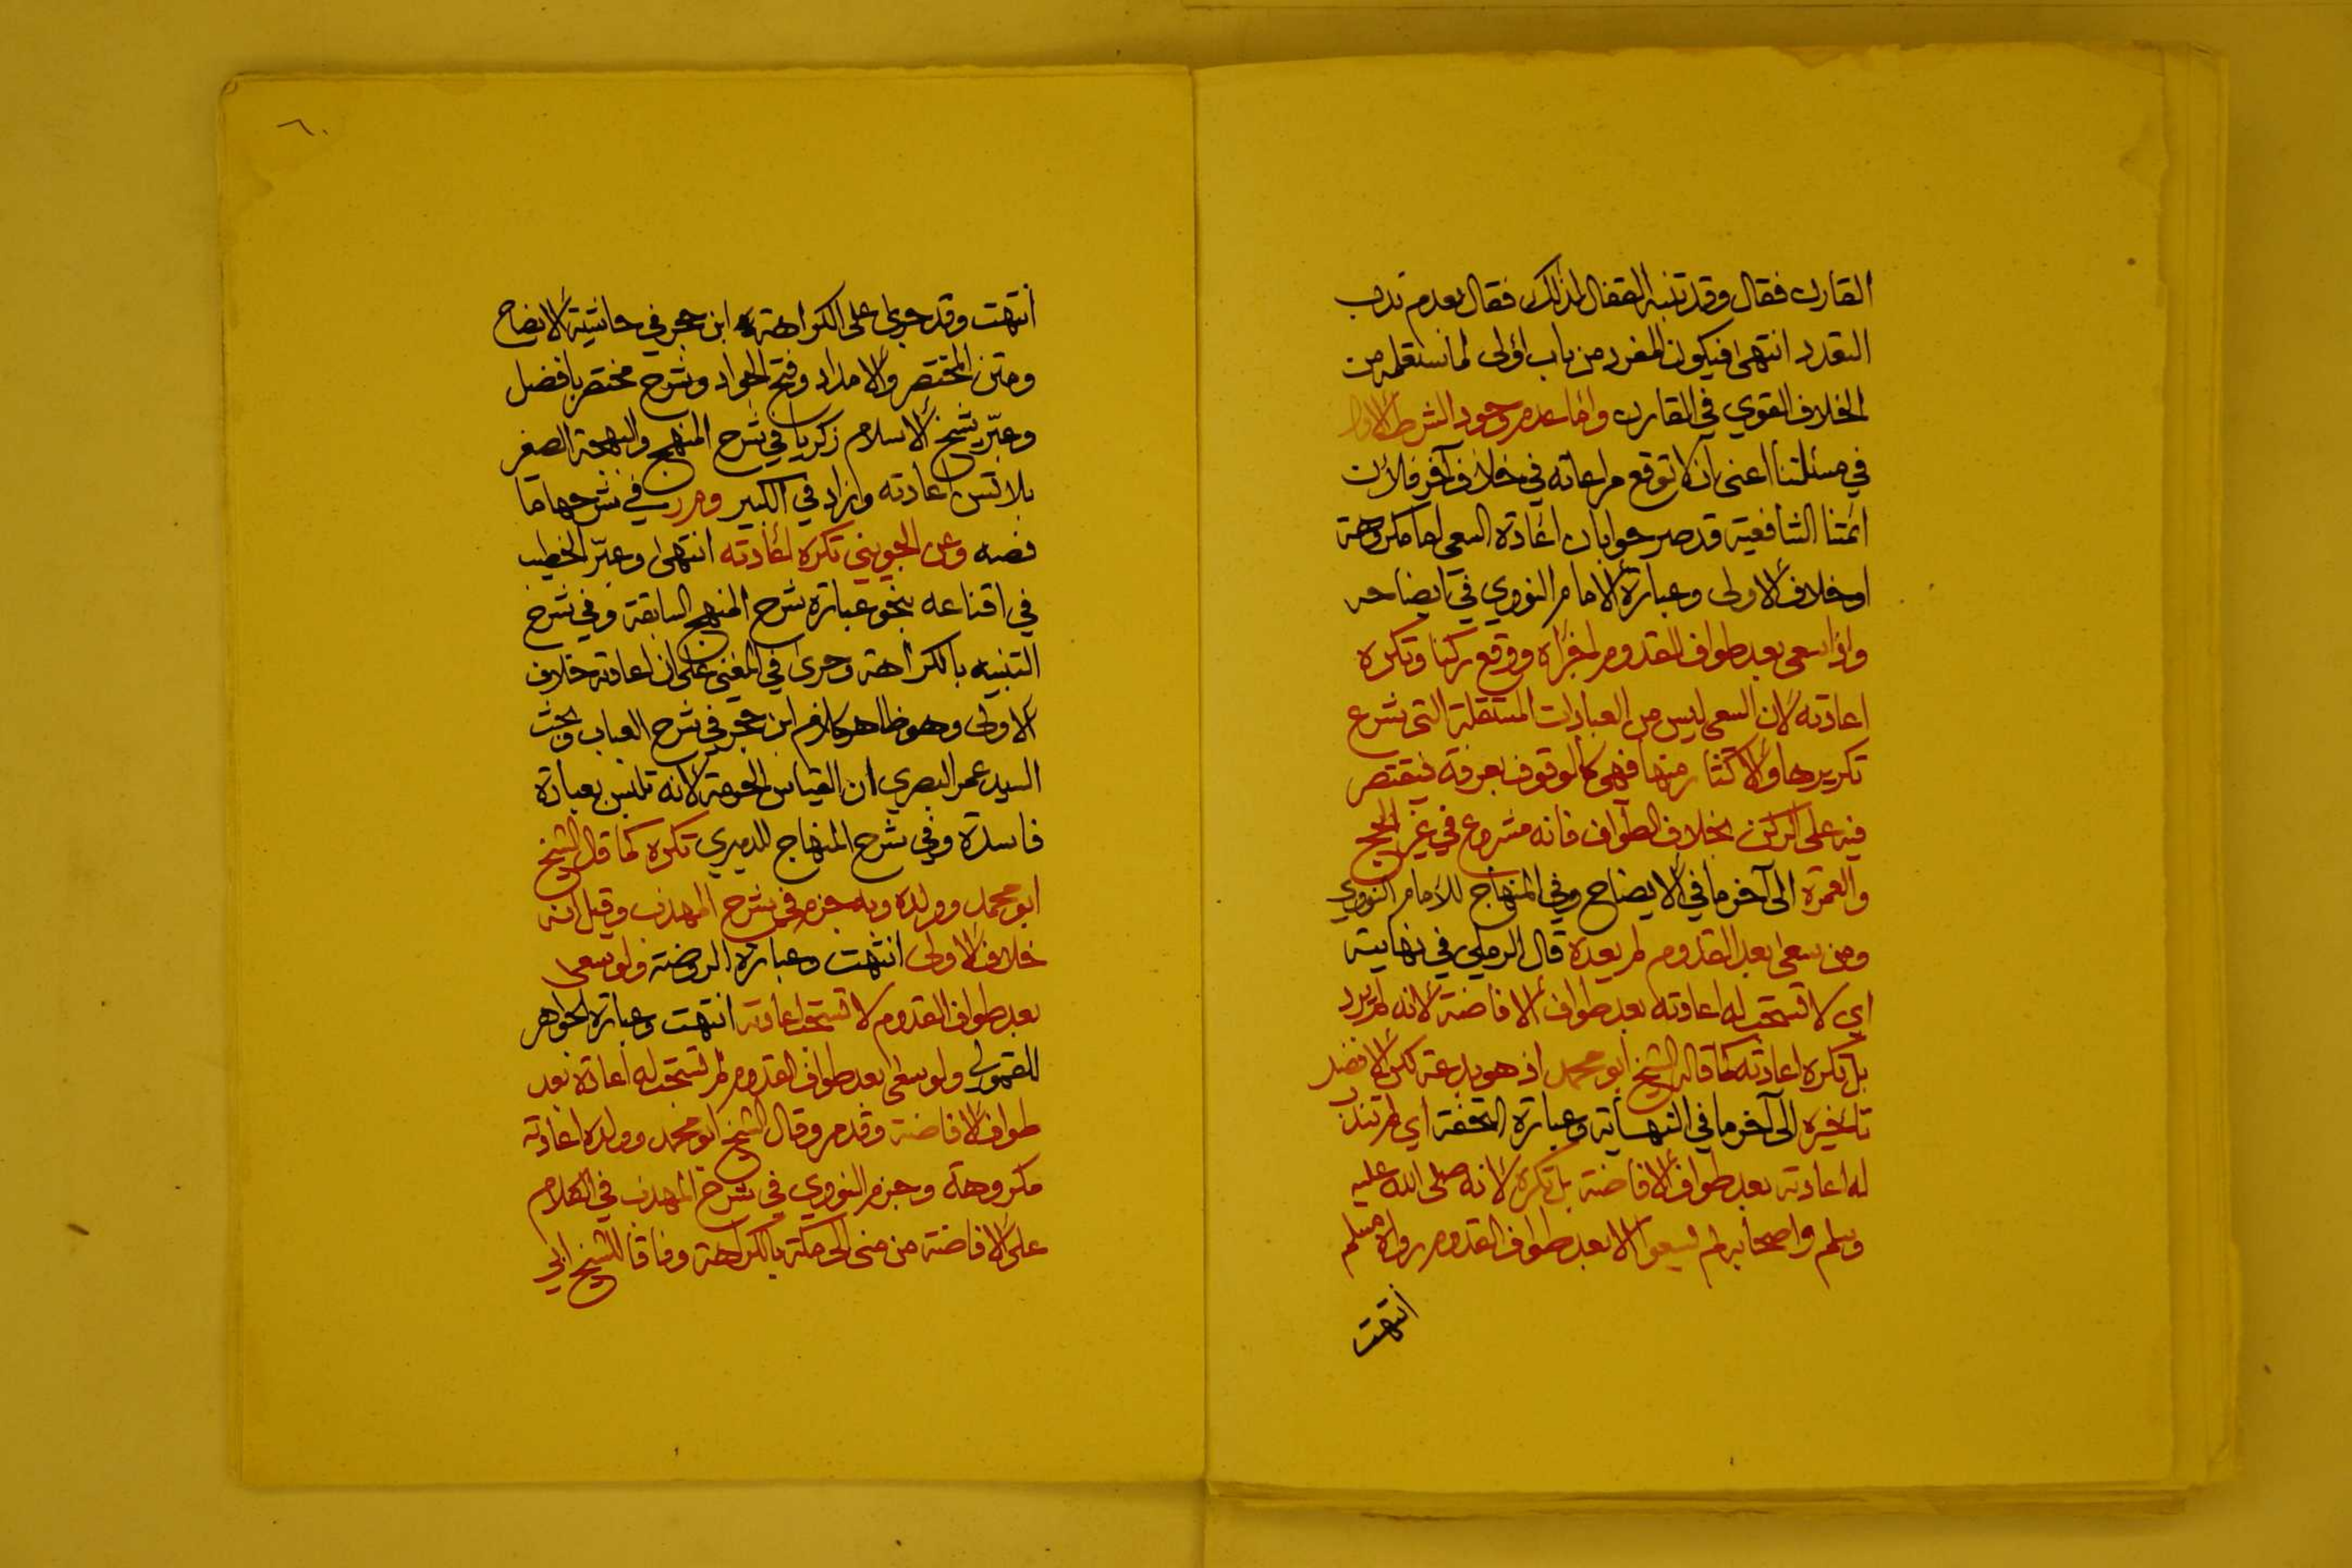 القارن فقال وقد تنبه القفال لذلك فقال بعدم ندب
التعدد انتهى فيكون المفرد من باب اولى لما ستعلمه من
الخلاف القوي في القارن واما عدم وجود الشرط الاول
في مسئلتنا اعني ان لا توقع مراعاته في خلاف آخر فلأن
ائمتنا الشافعية قد صرحوا بان اعادة السعي اما مكروهة
او خلاف الاولى وعبارة الامام النووي في ايضاحه
واذا سعى بعد طواف القدوم اجزأه ووقع ركنا وتكره
اعادته لان السعي ليس من العبادات المستقلة التي يشرع
تكريرها والاكثار منها فهي كالوقوف بعرفة فيقتصر
فيه على الركن بخلاف الطواف فانه مشروع في غير الحج
والعمرة الى آخر ما في الايضاح وفي المنهاج للامام النووي
ومن سعى بعد القدوم لم يعده قال الرملي في نهايته
اي لا تستحب له اعادته بعد طواف الافاضة لانه لم يرد
بل تكره اعادته كما قاله الشيخ ابو محمد اذ هو بدعة لكن الافضل
تاخيره الى آخر ما في النهاية وعبارة التحفة اي لم تندب
له اعادته بعد طواف الافاضة بل تكره لانه صلى الله عليه
وسلم واصحابه لم يسعوا الا بعد طواف القدوم رواه مسلم
انتهت
٦٠
انتهت وقد جرى على الكراهة ابن حجر في حاشية الايضاح
ومتن المختصر والامداد وفتح الجواد وشرح مختصر بافضل
وعبّر شيخ الاسلام زكريا في شرح المنهج والبهجة الصغير
بلا تسن اعادته وزاد في الكبير ومرر في شرحها ما
نصه وعن الجويني تكره اعادته انتهى وعبّر الخطيب
في اقناعه بنحو عبارة شرح المنهج السابقة وفي شرح
التنبيه بالكراهة وجرى في المغني على ان اعادته خلاف
الاولى وهو ظاهر كلام ابن حجر في شرح العباب وبحث
السيد عمر البصري ان القياس الحرمة لانه تلبس بعبادة
فاسدة وفي شرح المنهاج للدميري تكره كما قال الشيخ
ابو محمد وولده وبه جزم في شرح المهذب وقيل انه
خلاف الاولى انتهت وعبارة الروضة ولو سعى
بعد طواف القدوم لا تستحب اعادته انتهت وعبارة الجواهر
للقمولي ولو سعى بعد طواف القدوم لم تستحب له اعادة بعد
طواف الافاضة وقد مر وقال الشيخ ابو محمد وولده اعادته
مكروهة وجزم النووي في شرح المهذب في الكلام
على الافاضة من منى الى مكة بالكراهة وفاقا للشيخ ابي